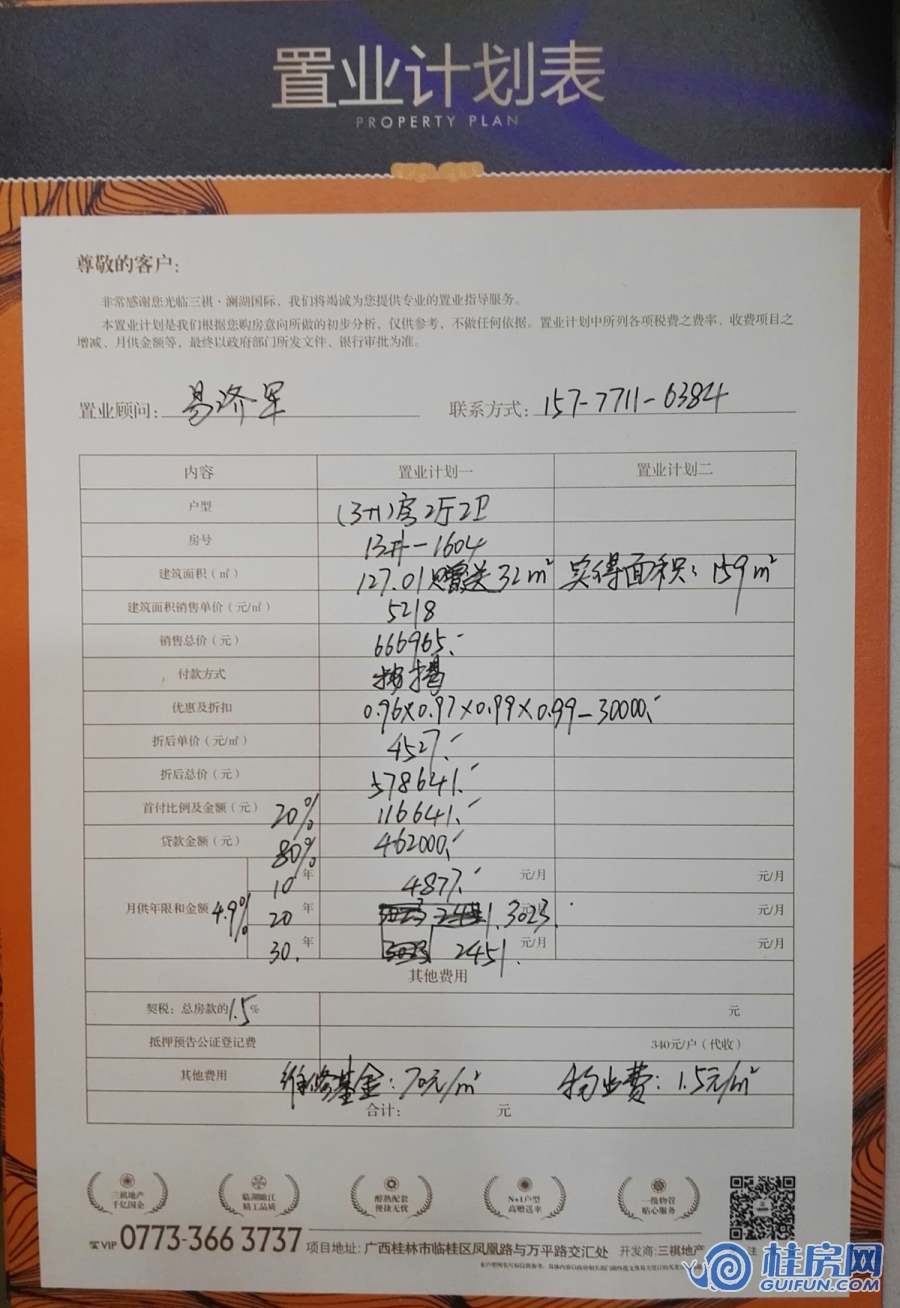 置业计划表
PROPERTY PLAN
尊敬的客户：
非常感谢您光临三祺·澜湖国际，我们将竭诚为您提供专业的置业指导服务。
本置业计划是我们根据您购房意向所做的初步分析，仅供参考，不做任何依据。置业计划中所列各项税费之费率、收费项目之
增减、月供金额等，最终以政府部门所发文件、银行审批为准。
置业顾问：易济军 联系方式：157-7711-6384
内容 置业计划一 置业计划二
户型 (3+1)房2厅2卫
房号 13#-1604
建筑面积（㎡） 127.01 赠送32m² 实得面积：159m²
建筑面积销售单价（元/㎡） 5218
销售总价（元） 666965.-
付款方式 按揭
优惠及折扣 0.96×0.97×0.99×0.99-30000.-
折后单价（元/㎡） 4527.-
折后总价（元） 578641.-
首付比例及金额（元） 20% 116641.-
贷款金额（元） 80% 462000.-
10年 4877.- 元/月 元/月
月供年限和金额 4.9% 20年 3023. 元/月 元/月
30.年 2451. 元/月 元/月
其他费用
契税：总房款的1.5% 元
抵押预告公证登记费 340元/户（代收）
其他费用 维修基金：70元/m² 物业费：1.5元/m²
合计： 元
三祺地产 千亿国企
临湖瞰江 精工品质
醇熟配套 便捷无忧
N+1户型 高赠送率
一级物管 贴心服务
VIP 0773-366 3737 项目地址：广西桂林市临桂区凤凰路与万平路交汇处 开发商：三祺地产
桂房网
GUIFUN.COM